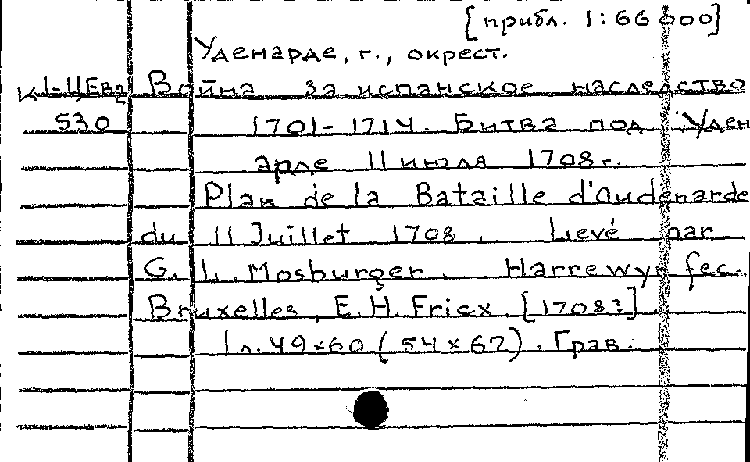 [прибл. 1:66 000]
Уденарде, г., окрест.
К1-ЦЕв2 Война за испанское наследство
530 1701-1714. Битва под Уден
арде 11 июля 1708 г.
Plan de la Bataille d'Oudenarde
du 11 Juillet 1708. Levé par
G. L. Mosburger. Harrewyn fec.
Bruxelles, E. H. Fricx. [1708?].
1 л. 49×60 (54×62). Грав.